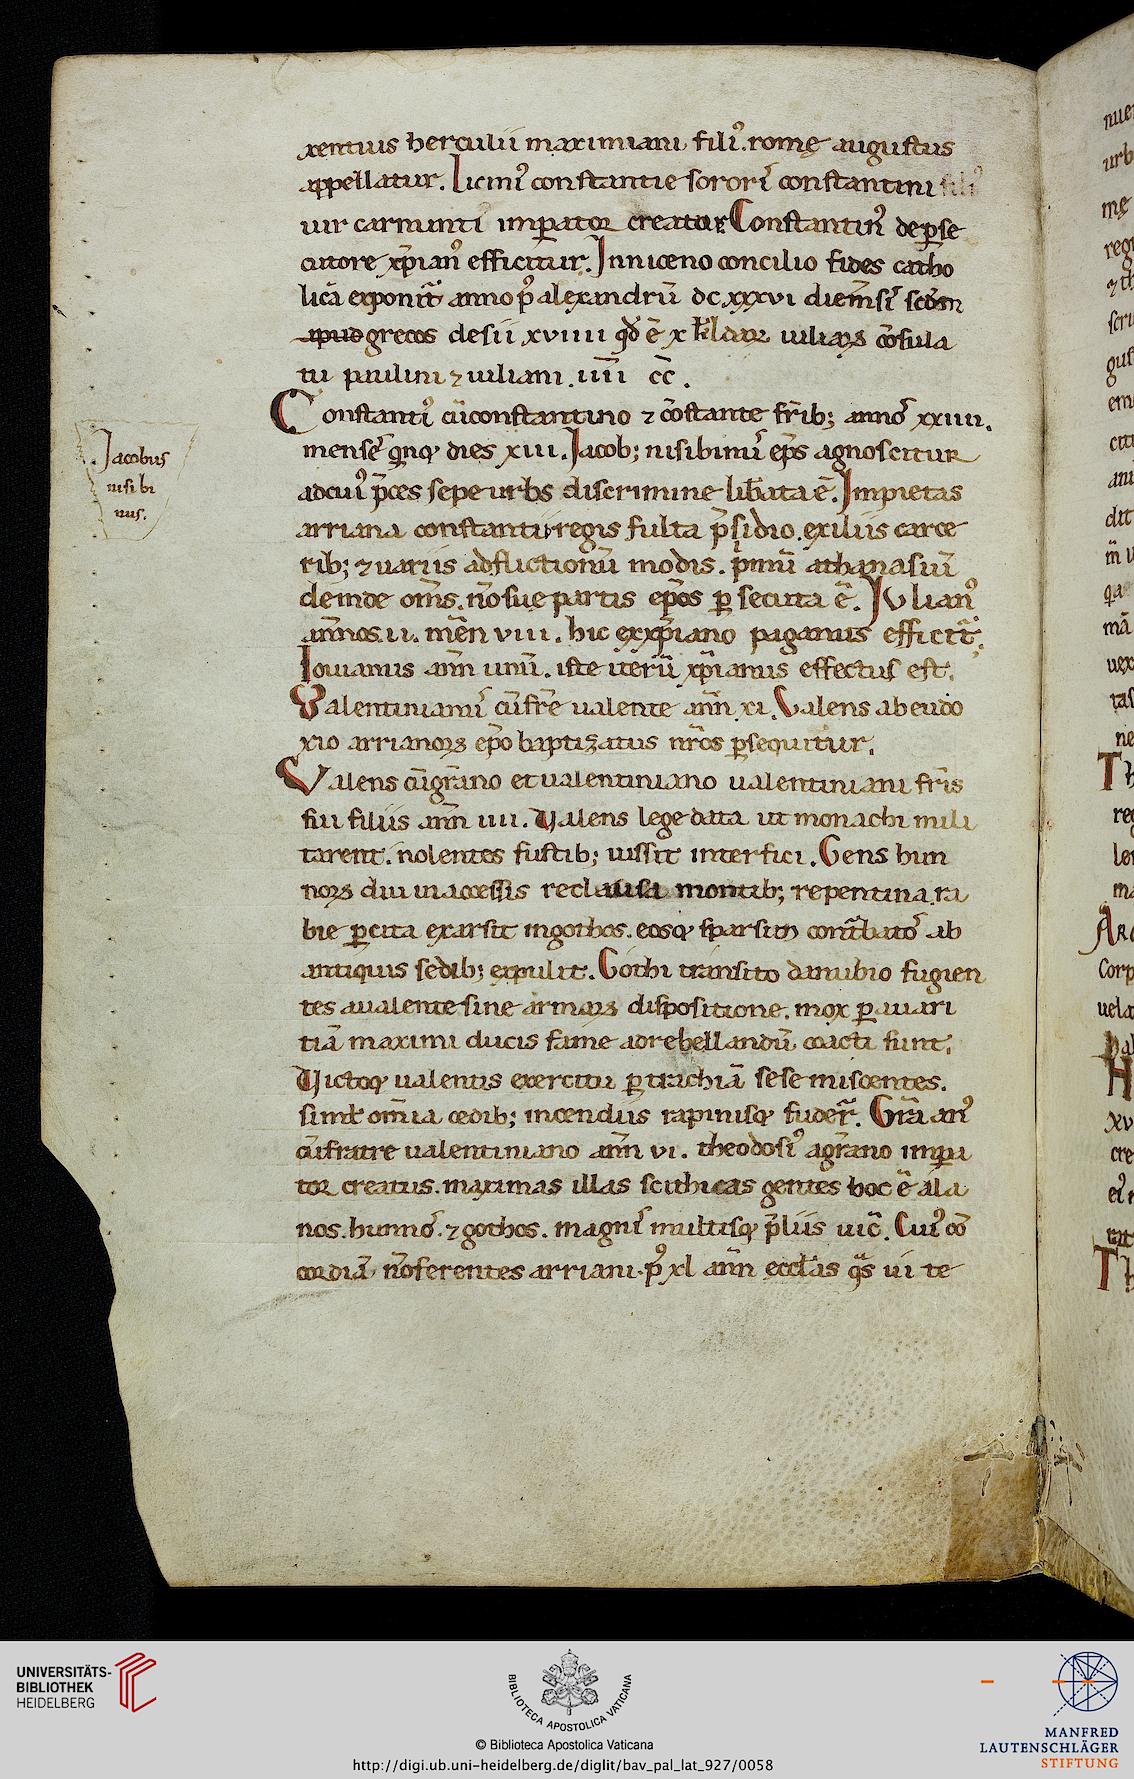 xentius herculii maximiani fili᾿. romę augustus
appellatur. Licini᾿ constantie soror᾿ constantini
uir carnunti imperator creatur Constantin᾿ de p̱se
cutore xp̄ian᾿ efficitur. In niceno concilio fides catho
licā exponit᷑ anno p᾿ alexandrū dc xxxvi
apud grecos desii xviiii qđ ē x kłdar iuliaꝝ cōsula
tu paulini ⁊ iuliani. iiii cc̄.
Constanti᾿ cū constantino ⁊ cōstante fr̄ib; anno᷒ xxiiii.
mense᷒ qnq; dies xiii. Jacob; nisibinu᷒ ep̄s agnoscitur
ad cui᾿ p̄ces sepe urbs discrimine lib̄ata ē. Impietas
arriana constantii regis fulta p̄sidio. exiliis carce
rib; ⁊ uariis adflictionū modis. p̄mū athanasiū
deinde om̄s. nō sue partis ep̄os ꝑ secuta ē. Iulian᾿
annos. ii. mēn viii. hic ex xp̄iano paganus efficit᷑;
Iouianus ann̄ unū. iste iterū xp̄ianus effectus est.
Valentinianu᷒ cū fr̄e ualente ann̄ xi. Valens ab eudo
xio arrianoꝝ ep̄o baptizatus nr̄os p̱sequitur.
Valens cū gr̄ano et ualentiniano ualentiniani fr̄is
sui filiis ann̄ iiii. Valens lege data ut monachi mili
tarent. nolentes fustib; iussit interfici. Gens hun
noꝝ diu inaccessis reclausa montib; repentina ra
bie ꝑcita exarsit in gothos. eosq; sparsim conturbato᷒ ab
antiquis sedib; expulit. Gothi transito danubio fugien
tes a ualente sine armoꝝ dispositione. mox ꝑ auari
tiā maximi ducis fame ad rebellandū coacti sunt.
Victoq; ualentis exercitu ꝑ trachiā sese miscentes.
simł om̄ia cedib; incendiis rapinisq; fuder᷑. Gr̄aan᾿
cū fratre ualentiniano ann̄ vi. theodosi᾿ a gr̄ano impa
tor creatus. maximas illas scithicas gentes hoc ē ala
nos. hunno᷒. ⁊ gothos. magni᷒ multisq; p̄liis uic̄. Cui᾿ co᷒
cordiā nō ferentes arriani. p᾿ xl ann̄ eccłas qᷓs ui te
Jacobus
nisibi
nus.
UNIVERSITÄTS-
BIBLIOTHEK
HEIDELBERG
BIBLIOTECA APOSTOLICA VATICANA
© Biblioteca Apostolica Vaticana
http://digi.ub.uni-heidelberg.de/diglit/bav_pal_lat_927/0058
MANFRED
LAUTENSCHLÄGER
STIFTUNG